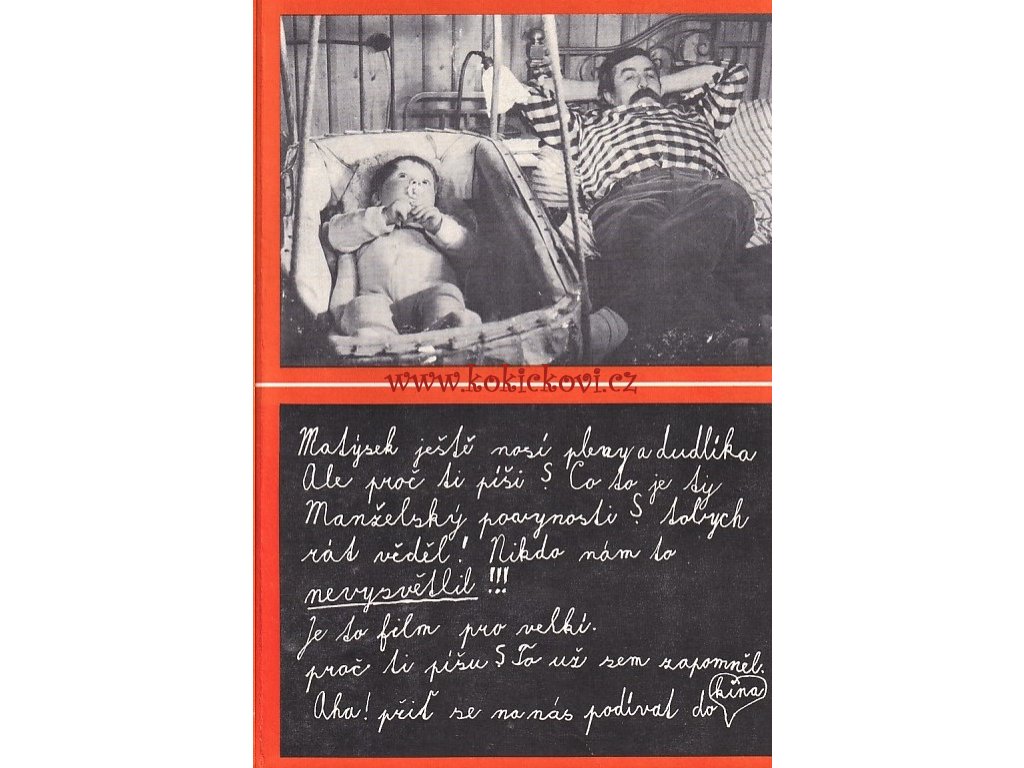 www.kokickovi.cz
Matýsek ještě nosí pleny a dudlíka
Ale proč ti píši ? Co to je ty
Manželský povynosti ? tobych
rát věděl! Nikdo nám to
nevysvětlil !!!
Je to film pro velkí.
proč ti píšu ? To už sem zapomněl.
Aha! přiť se na nás podívat do kina